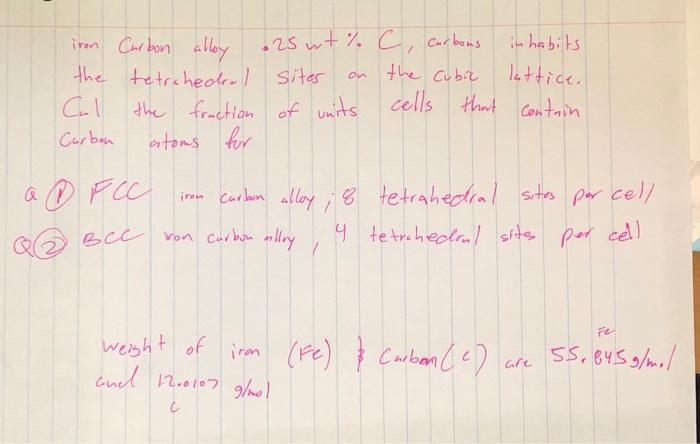 iron Carbon alloy .25 wt % C, carbons inhabits
the tetrahedral sites on the cubic lattice.
Cal the fraction of units cells that contain
Carbon atoms for
Q ① FCC iron carbon alloy ; 8 tetrahedral sites per cell
Q ② BCC iron carbon alloy , 4 tetrahedral sites per cell
weight of iron (Fe) & Carbon (c) are 55.845 g/mol Fe
and 12.0107 g/mol
C